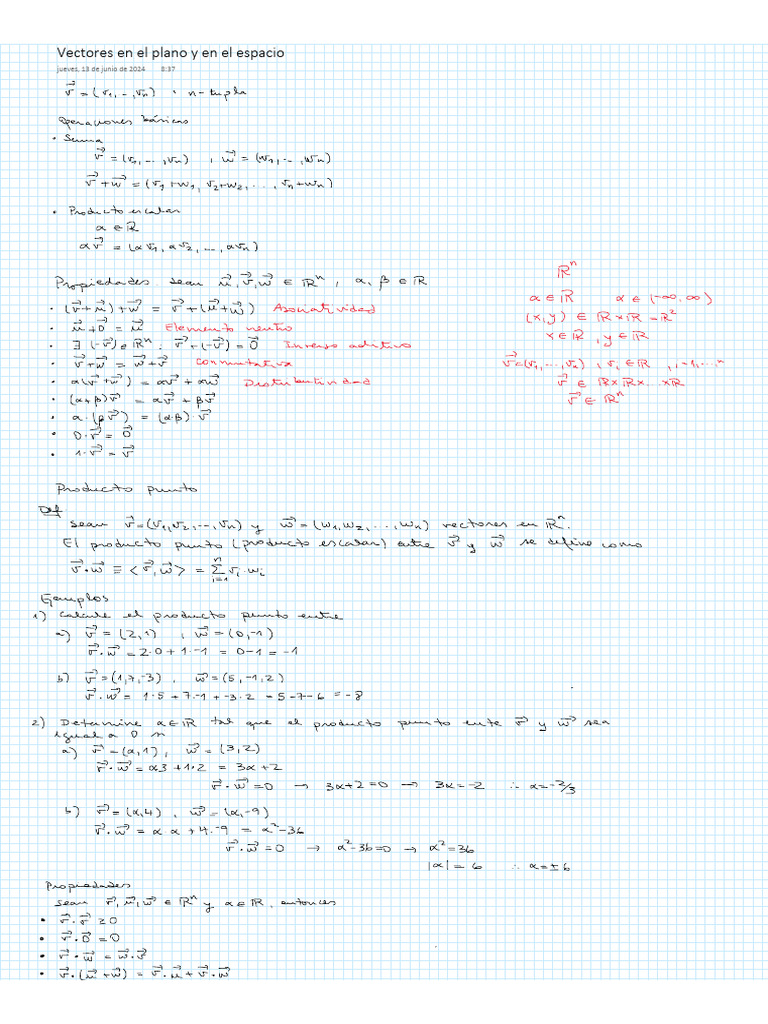 Vectores en el plano y en el espacio
jueves, 13 de junio de 2024 8:37
v⃗ = (v₁, …, vₙ) : n-tupla
Operaciones básicas
• Suma
v⃗ = (v₁, …, vₙ) , w⃗ = (w₁, …, wₙ)
v⃗ + w⃗ = (v₁+w₁, v₂+w₂, …, vₙ+wₙ)
• Producto escalar
α ∈ ℝ
αv⃗ = (αv₁, αv₂, …, αvₙ)
Propiedades. Sean u⃗, v⃗, w⃗ ∈ ℝⁿ, α, β ∈ ℝ
• (v⃗+u⃗)+w⃗ = v⃗+(u⃗+w⃗) Asociatividad
• u⃗+0⃗ = u⃗ Elemento neutro
• ∃ (-v⃗) ∈ ℝⁿ : v⃗+(-v⃗) = 0⃗ Inverso aditivo
• v⃗+w⃗ = w⃗+v⃗ Conmutativa
• α(v⃗+w⃗) = αv⃗+αw⃗ Distributividad
• (α+β)v⃗ = αv⃗+βv⃗
• α·(βv⃗) = (αβ)·v⃗
• 0·v⃗ = 0⃗
• 1·v⃗ = v⃗
ℝⁿ
α ∈ ℝ α ∈ (-∞, ∞)
(x, y) ∈ ℝ×ℝ = ℝ²
x ∈ ℝ, y ∈ ℝ
v⃗ = (v₁, …, vₙ), vᵢ ∈ ℝ, i=1,…,n
v⃗ ∈ ℝ×ℝ×…×ℝ
v⃗ ∈ ℝⁿ
Producto punto
Def
Sean v⃗ = (v₁, v₂, …, vₙ) y w⃗ = (w₁, w₂, …, wₙ) vectores en ℝⁿ.
El producto punto (producto escalar) entre v⃗ y w⃗ se define como
v⃗·w⃗ ≡ <v⃗, w⃗> = Σᵢ₌₁ⁿ vᵢ·wᵢ
Ejemplos
1) Calcule el producto punto entre
a) v⃗ = (2,1) , w⃗ = (0,-1)
v⃗·w⃗ = 2·0+1·-1 = 0-1 = -1
b) v⃗ = (1,7,-3) , w⃗ = (5,-1,2)
v⃗·w⃗ = 1·5+7·-1+-3·2 = 5-7-6 = -8
2) Determine α∈ℝ tal que el producto punto ente v⃗ y w⃗ sea
igual a 0 si
a) v⃗ = (α,1) , w⃗ = (3,2)
v⃗·w⃗ = α3+1·2 = 3α+2
v⃗·w⃗ = 0 → 3α+2=0 → 3α=-2 ∴ α=-2/3
b) v⃗ = (α,4) , w⃗ = (α,-9)
v⃗·w⃗ = α·α+4·-9 = α²-36
v⃗·w⃗ = 0 → α²-36=0 → α²=36
|α| = 6 ∴ α=±6
Propiedades
Sean v⃗, u⃗, w⃗ ∈ ℝⁿ y α∈ℝ, entonces
• v⃗·v⃗ ≥ 0
• v⃗·0⃗ = 0
• v⃗·w⃗ = w⃗·v⃗
• v⃗·(u⃗+w⃗) = v⃗·u⃗+v⃗·w⃗